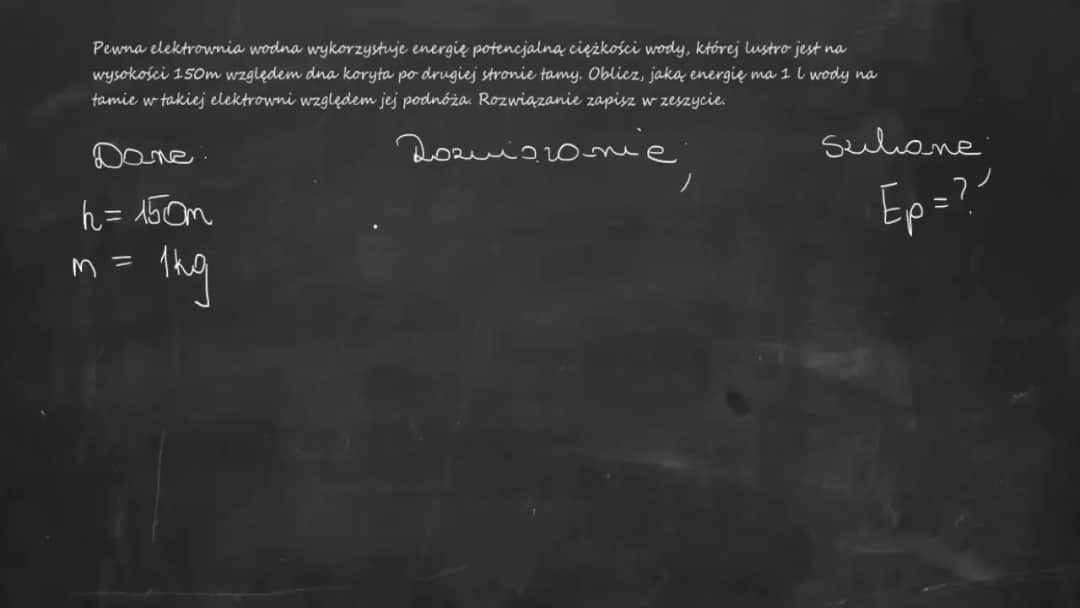 Pewna elektrownia wodna wykorzystuje energię potencjalną ciężkości wody, której lustro jest na
wysokości 150m względem dna koryta po drugiej stronie tamy. Oblicz, jaką energię ma 1 l wody na
tamie w takiej elektrowni względem jej podnóża. Rozwiązanie zapisz w zeszycie.
Dane: Rozwiązanie: Szukane:
h = 150m Ep = ?
m = 1kg